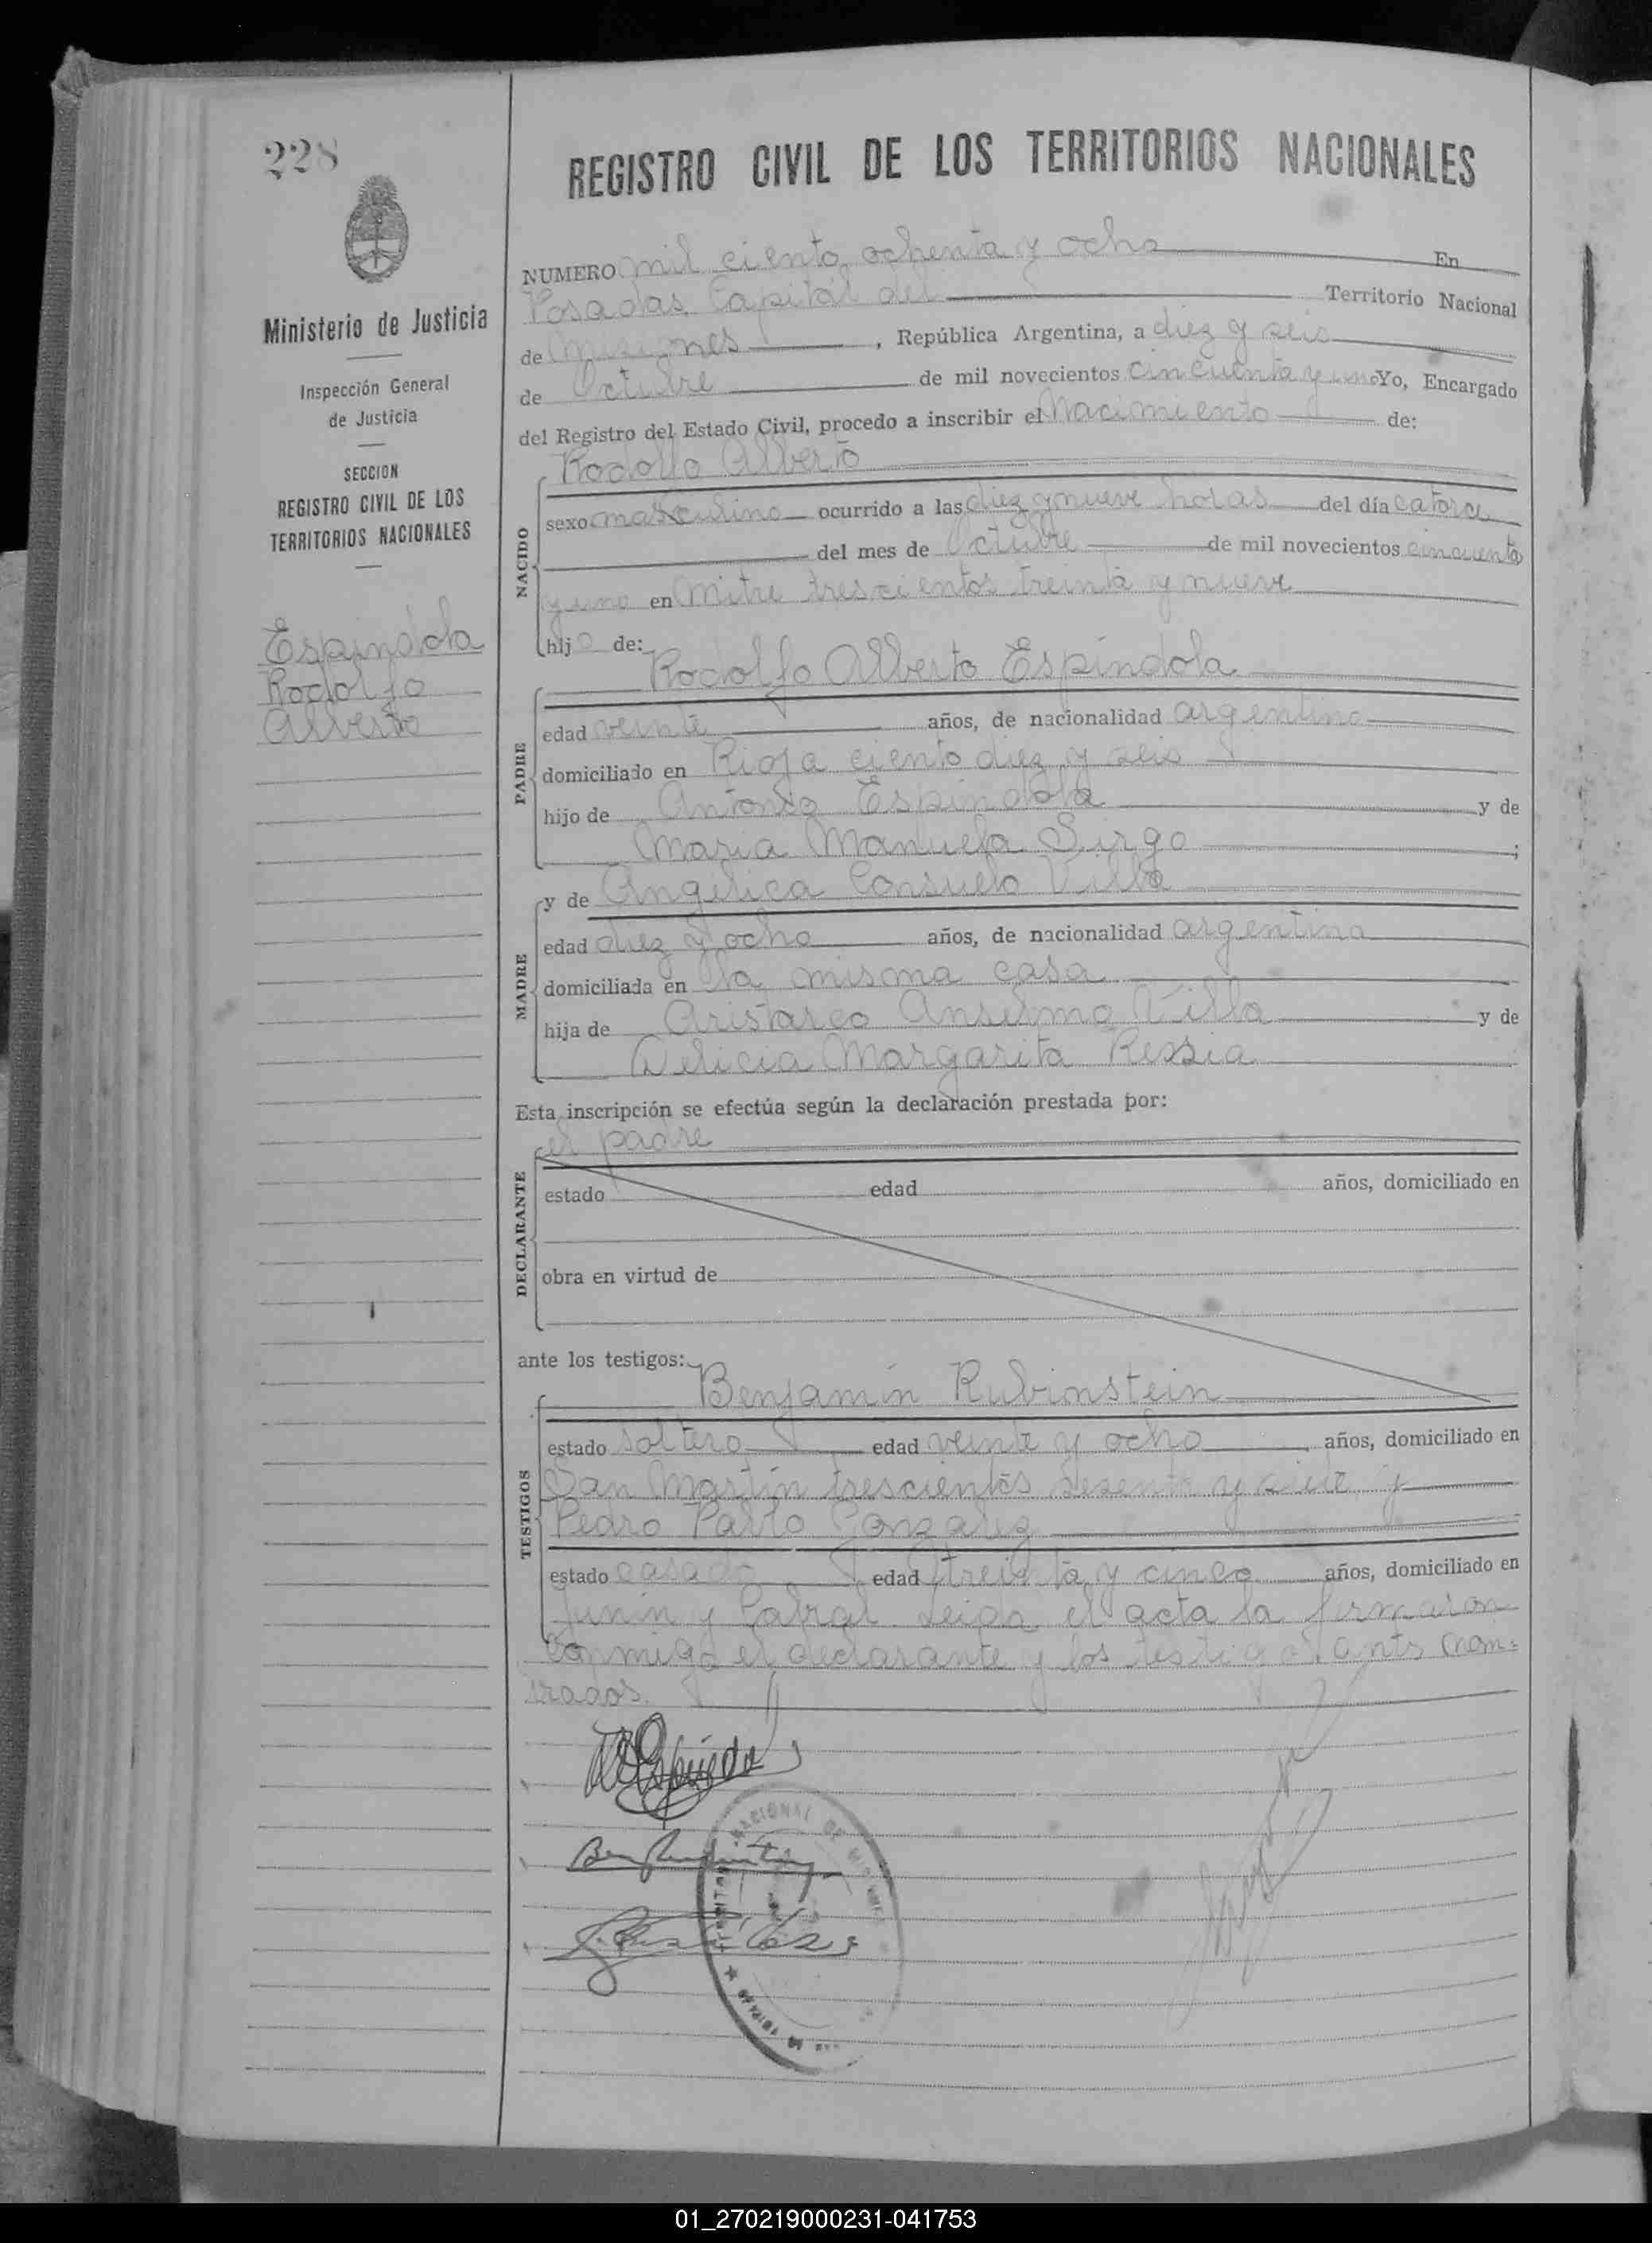 228
Ministerio de Justicia
Inspección General
de Justicia
SECCION
REGISTRO CIVIL DE LOS
TERRITORIOS NACIONALES
Espindola
Rodolfo
Alberto
REGISTRO CIVIL DE LOS TERRITORIOS NACIONALES
NUMERO mil ciento ochenta y ocho En
Posadas, Capital del Territorio Nacional
de Misiones, República Argentina, a diez y seis
de Octubre de mil novecientos cincuenta y uno Yo, Encargado
del Registro del Estado Civil, procedo a inscribir el Nacimiento de:
Rodolfo Alberto
NACIDO
sexo masculino ocurrido a las diez y nueve horas del día catorce
del mes de Octubre de mil novecientos cincuenta
y uno en Mitre trescientos treinta y nueve
hijo de:
Rodolfo Alberto Espíndola
PADRE
edad veinte años, de nacionalidad argentino
domiciliado en Rioja ciento diez y seis
hijo de Antonio Espindola y de
Maria Manuela Sirgo ;
y de Angelica Consuelo Villa
MADRE
edad diez y ocho años, de nacionalidad argentina
domiciliada en la misma casa
hija de Aristarco Anselmo Villa y de
Delicia Margarita Ressia
Esta inscripción se efectúa según la declaración prestada por:
el padre
DECLARANTE
estado edad años, domiciliado en
obra en virtud de
ante los testigos:
Benjamín Rubinstein
TESTIGOS
estado soltero edad veinte y ocho años, domiciliado en
San Martín trescientos sesenta y siete y
Pedro Pablo Gonzalez
estado casado edad treinta y cinco años, domiciliado en
Junín y Cabral. Leida el acta la firmaron
conmigo el declarante y los testigos ants nom=
brados.
NACIONAL DE
01_270219000231-041753